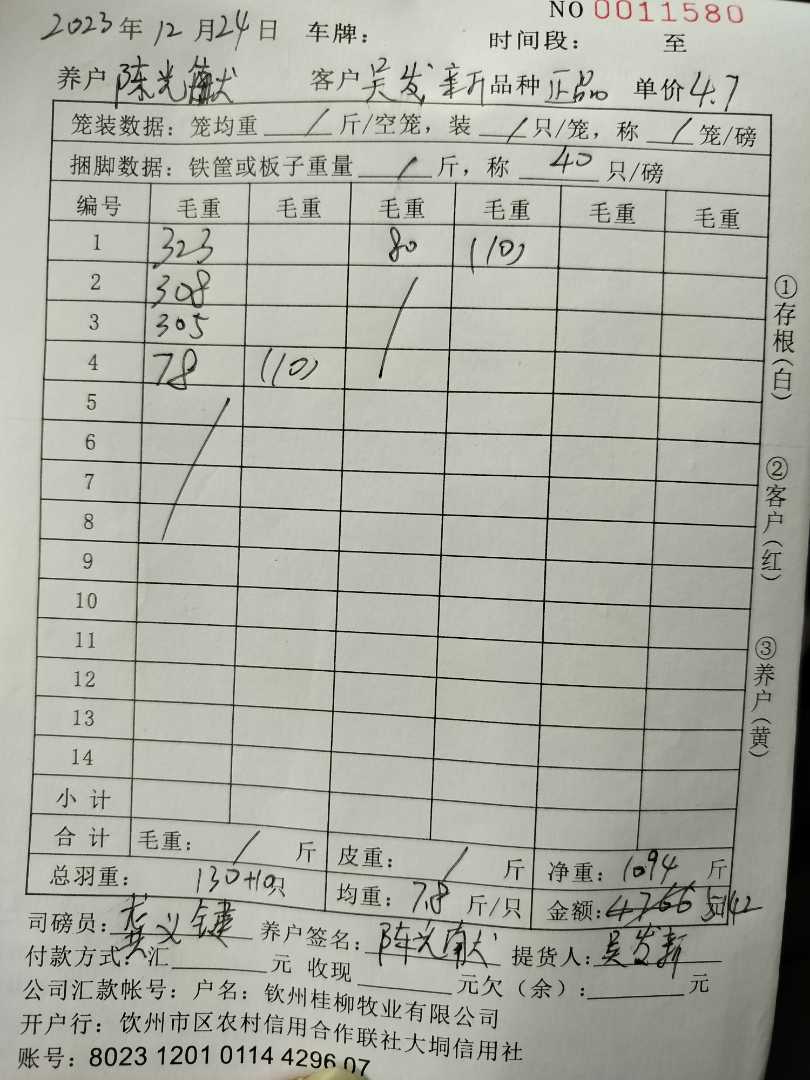 NO 0011580
2023年 12月24日 车牌： 时间段： 至
养户 陈光献 客户 吴发新 品种 正品 单价 4.7
笼装数据：笼均重 / 斤/空笼，装 / 只/笼，称 / 笼/磅
捆脚数据：铁筐或板子重量 / 斤，称 40 只/磅
编号 毛重 毛重 毛重 毛重 毛重 毛重
1 323 80 (10)
2 308
3 305
4 78 (10)
5
6
7
8
9
10
11
12
13
14
小计
合计 毛重： / 斤 皮重： / 斤 净重：1094 斤
总羽重： 130+10只 均重：7.8 斤/只 金额：5142
司磅员： 养户签名：陈光献 提货人：吴发新
付款方式：汇 元 收现 元欠（余）： 元
公司汇款帐号：户名：钦州桂柳牧业有限公司
开户行：饮州市区农村信用合作联社大垌信用社
账号：8023 1201 0114 4296 07
①存根（白）
②客户（红）
③养户（黄）